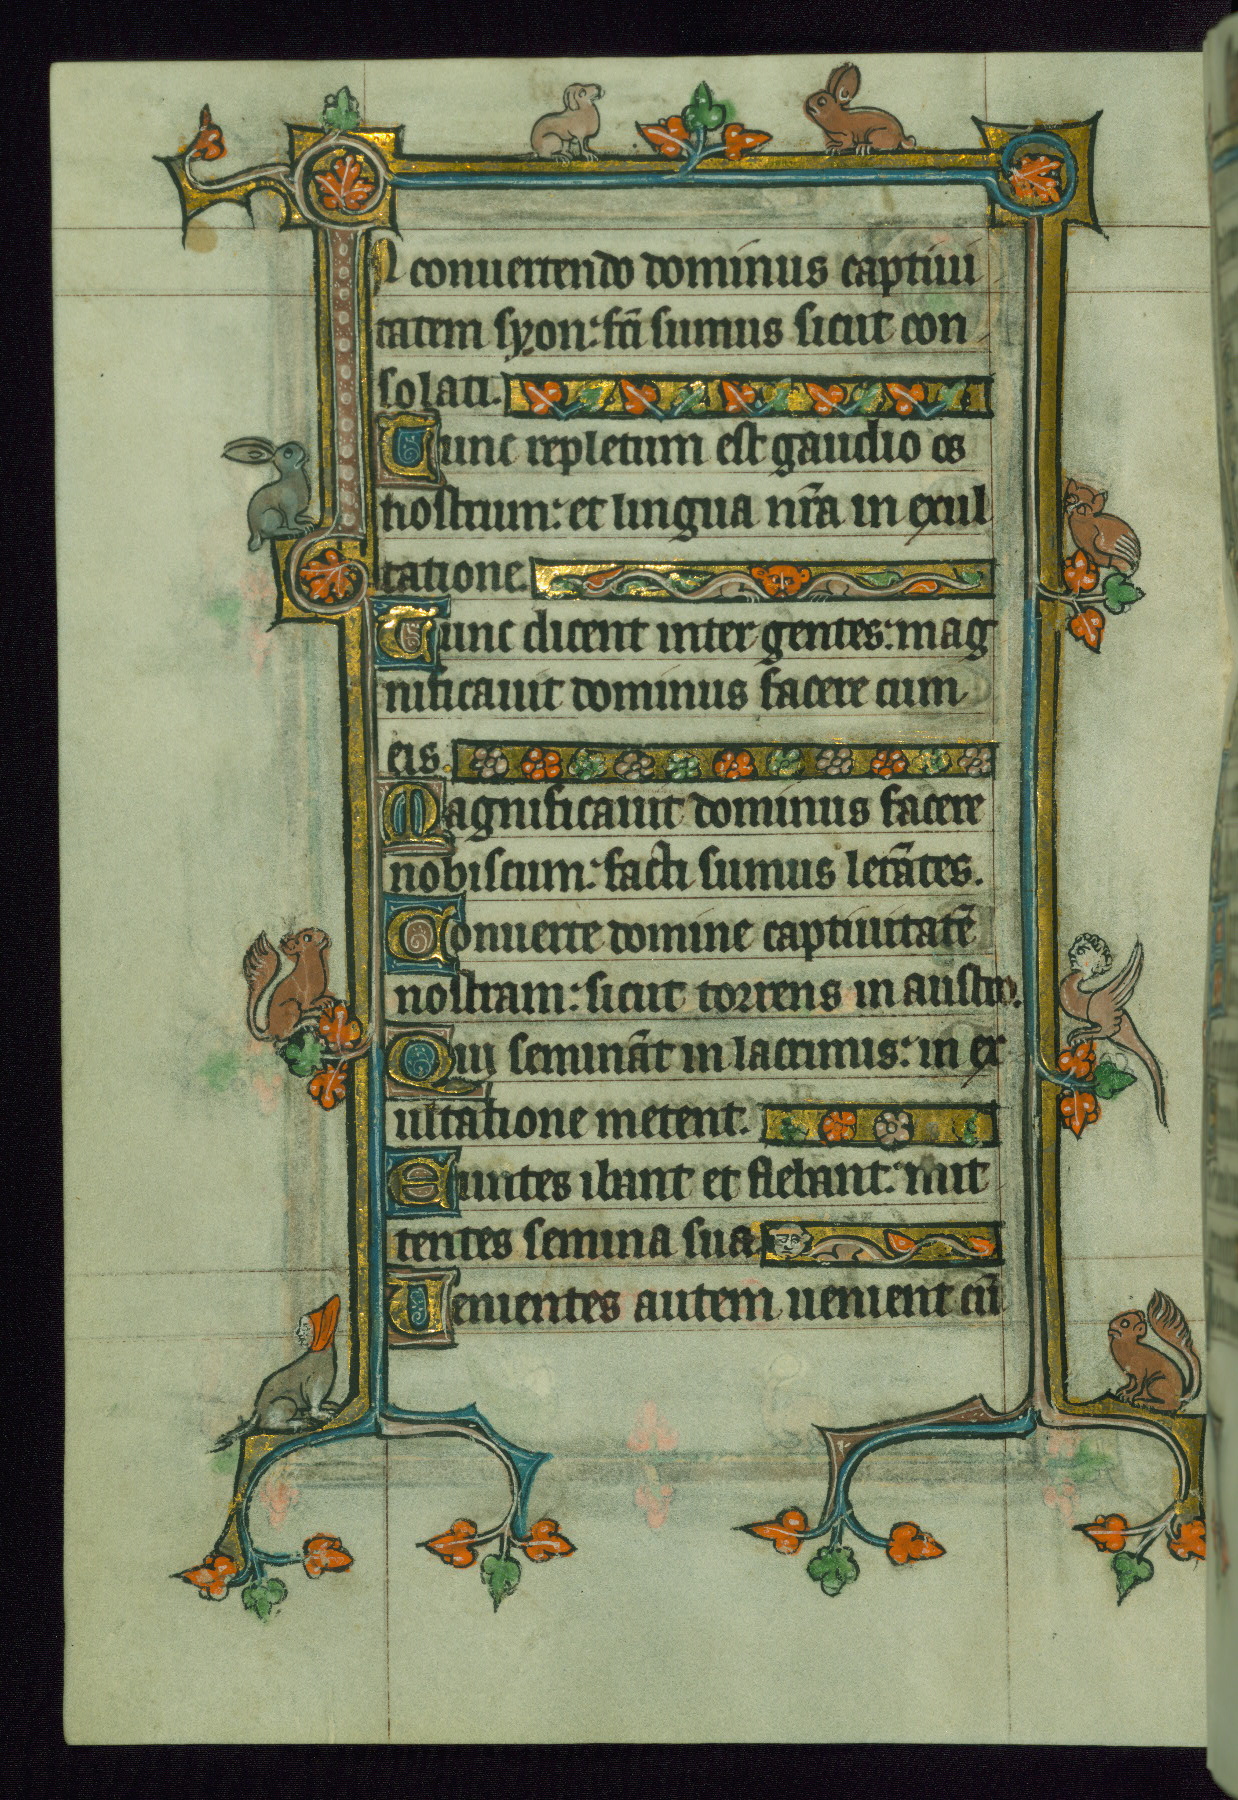 In conuertendo dominus captiui
tatem syon: fc̄i sumus sicut con
solati.
Tunc repletum est gaudio os
nostrum: et lingua nr̄a in exul
tatione.
Tunc dicent inter gentes: mag
nificauit dominus facere cum
eis.
Magnificauit dominus facere
nobiscum: facti sumus letātes.
Conuerte domine captiuitatē
nostram: sicut torrens in austro.
Qui semināt in lacrimis: in ex
ultatione metent.
Euntes ibant et flebant: mit
tentes semina sua
Uenientes autem uenient cū